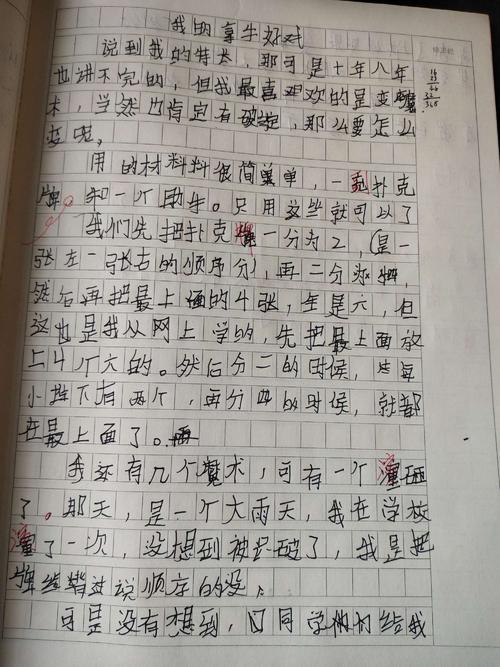 我的拿牛好戏
说到我的特长，那可是十年八年
也讲不完的，但我最喜欢的是变魔
术，当然也肯定有破绽，那么要怎么
变呢，
用的材料料很简单单，一副扑克
牌。和一个助手。只用这些就可以了
我们先把扑克牌一分为2，（是一
张左一张右的顺序分），再二分
然后再把最上面的4张，全是六，但
这也是我从网上学的，先把最上面放
上4个六的。然后分二的时候，
小堆下有两个，再分四的时候，就都
在最上面了。
我还有几个魔术，可有一个演砸
了。那天，是一个大雨天，我在学校
演了一次，没想到被识破了，我是把
牌给背过说顺序的没，
可是没有想到，同学们给我